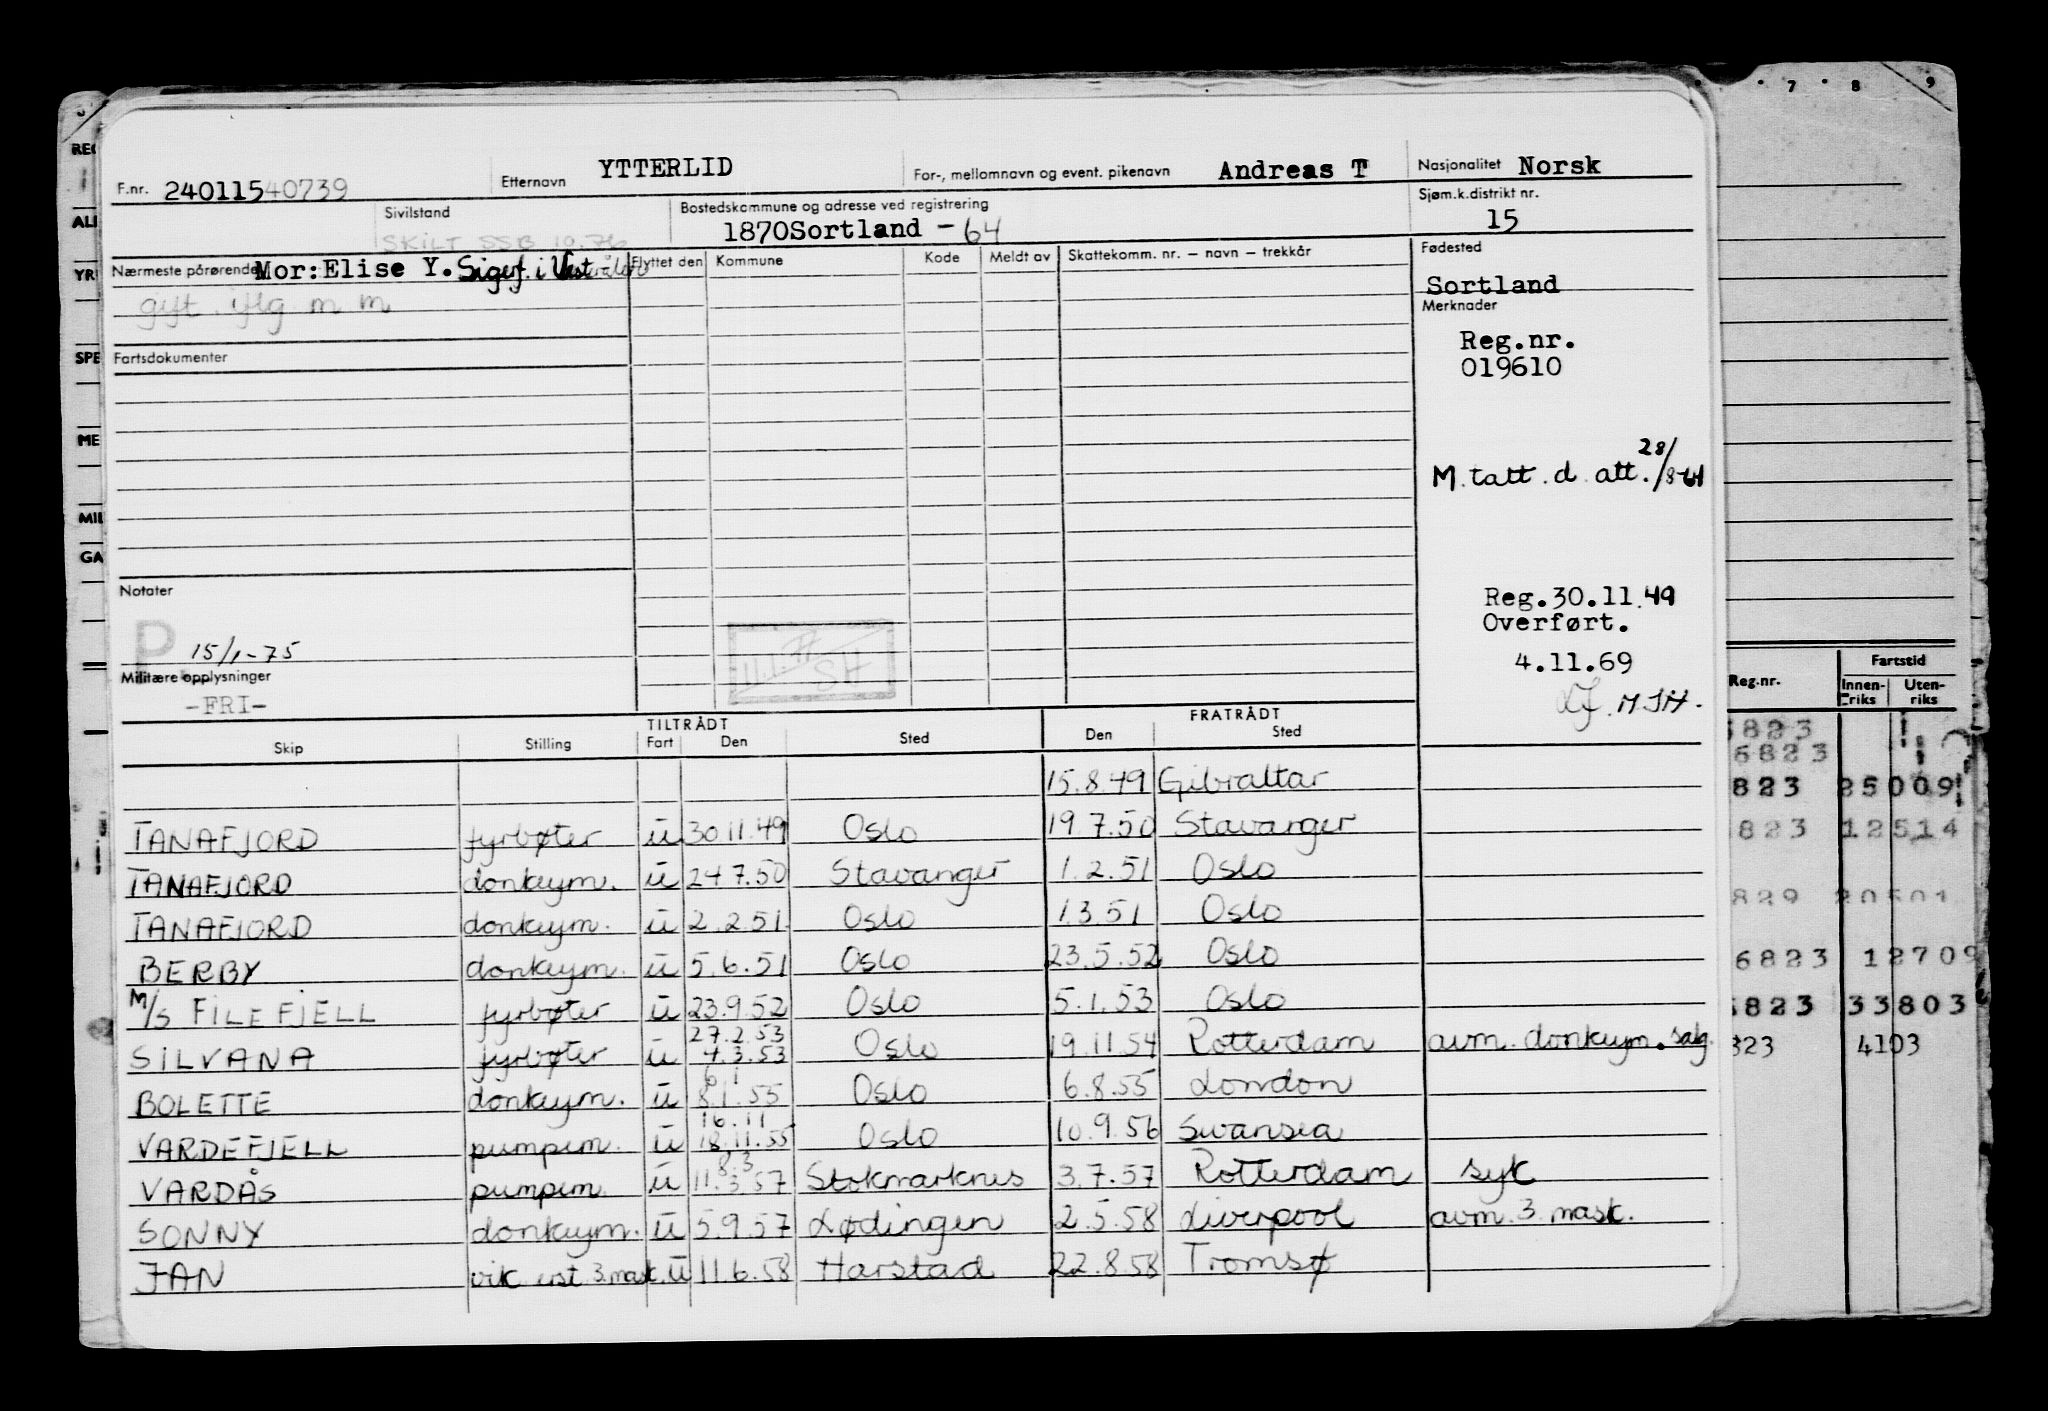 7 8 9
F.nr. 24011540739 Etternavn YTTERLID For-, mellomnavn og event. pikenavn Andreas T Nasjonalitet Norsk
Sivilstand SKILT SSB 10.76 Bostedskommune og adresse ved registrering 1870Sortland - 64 Sjøm.k.distrikt nr. 15
Nærmeste pårørende Mor:Elise Y. Sigerf. i Vesterålen Flyttet den Kommune Kode Meldt av Skattekomm. nr. – navn – trekkår Fødested
gift iflg m m Sortland
Merknader
Reg.nr.
019610
Fartsdokumenter
M. tatt. d. att. 28/8-61
Notater
Reg.30.11.49
Overført.
P 15/1-75
4.11.69
Militære opplysninger
-FRI-
SH
TILTRÅDT FRATRÅDT
Skip Stilling Fart Den Sted Den Sted
15.8.49 Gibraltar
TANAFJORD fyrbøter u 30.11.49 Oslo 19.7.50 Stavanger
TANAFJORD donkeym. u 24 7.50 Stavanger 1.2.51 Oslo
TANAFJORD donkeym. u 2.2.51 Oslo 1.3.51 Oslo
BERBY donkeym. u 5.6.51 Oslo 23.5.52 Oslo
M/S FILEFJELL fyrbøter u 23.9.52 Oslo 5.1.53 Oslo
27.2.53
SILVANA fyrbøter u 4.3.53 Oslo 19.11.54 Rotterdam avm. donkeym. salg.
6 1
BOLETTE donkeym. u 8.1.55 Oslo 6.8.55 London
16.11
VARDEFJELL pumpem. u 18.11.55 Oslo 10.9.56 Swansea
8.3
VARDÅS pumpem. u 11.3.57 Stokmarknes 3.7.57 Rotterdam syk
SONNY donkeym. u 5.9.57 Lødingen 2.5.58 Liverpool avm. 3. mask.
JAN vik. est. 3. mask. u 11.6.58 Harstad 22.8.58 Tromsø
REG
ALI
YR
SPE
ME
MIL
GA
Reg.nr. Fartstid
Innen-riks Uten-riks
6823
6823
823 25009
823 12514
829 20501
6823 12709
6823 33803
823 4103